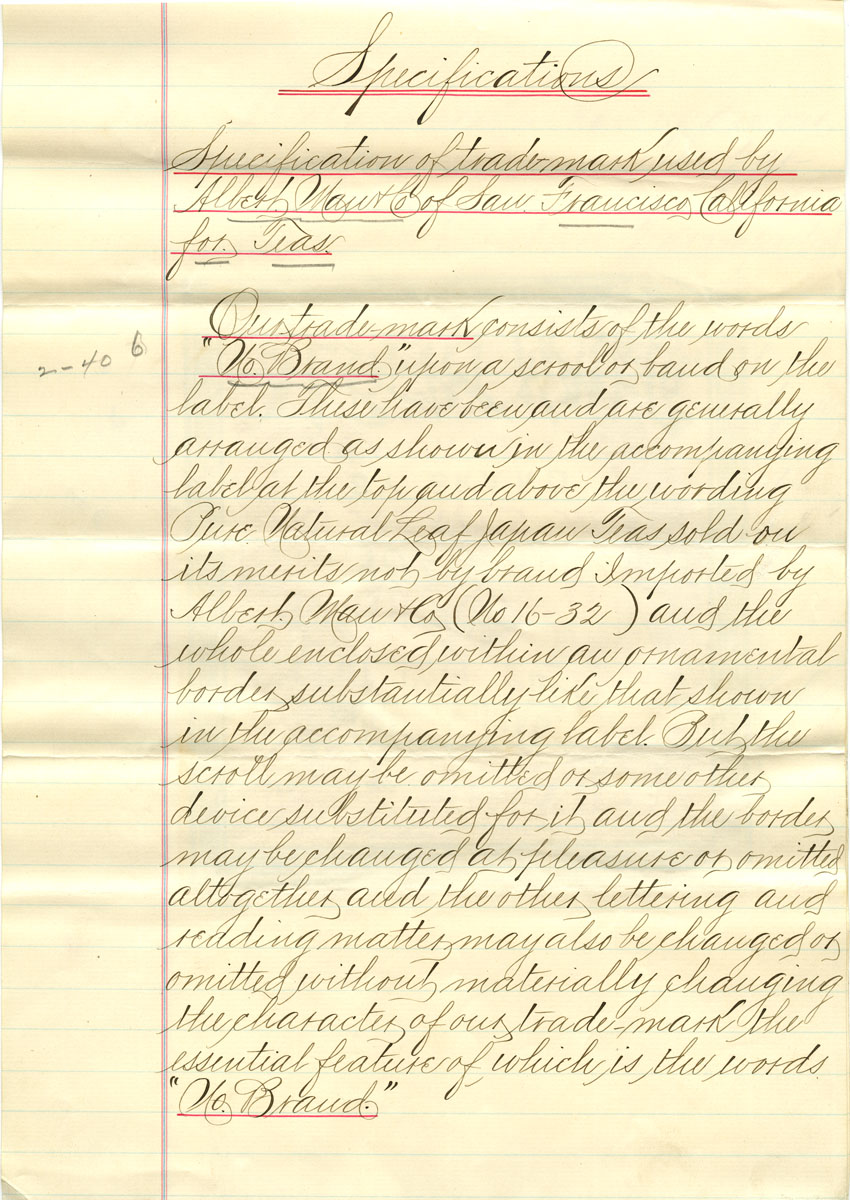 Specifications
Specification of trade-mark used by
Albert Mau & Co of San Francisco, California
for Teas.
Our trade-mark consists of the words
2-40 6
"No. Brand." upon a scrool or band on the
label. These have been and are generally
arranged as shown in the accompanying
label at the top and above the wording
Pure Natural Leaf Japan Teas sold on
its merits not by brand Imported by
Albert Mau & Co (No 16-32) and the
whole enclosed within an ornamental
border substantially like that shown
in the accompanying label. But the
scroll may be omitted or some other
device substituted for it and the border
may be changed at pleasure or omitted
altogether and the other lettering and
reading matter may also be changed or
omitted without materially changing
the character of our trade-mark the
essential feature of which is the words
"No. Brand."